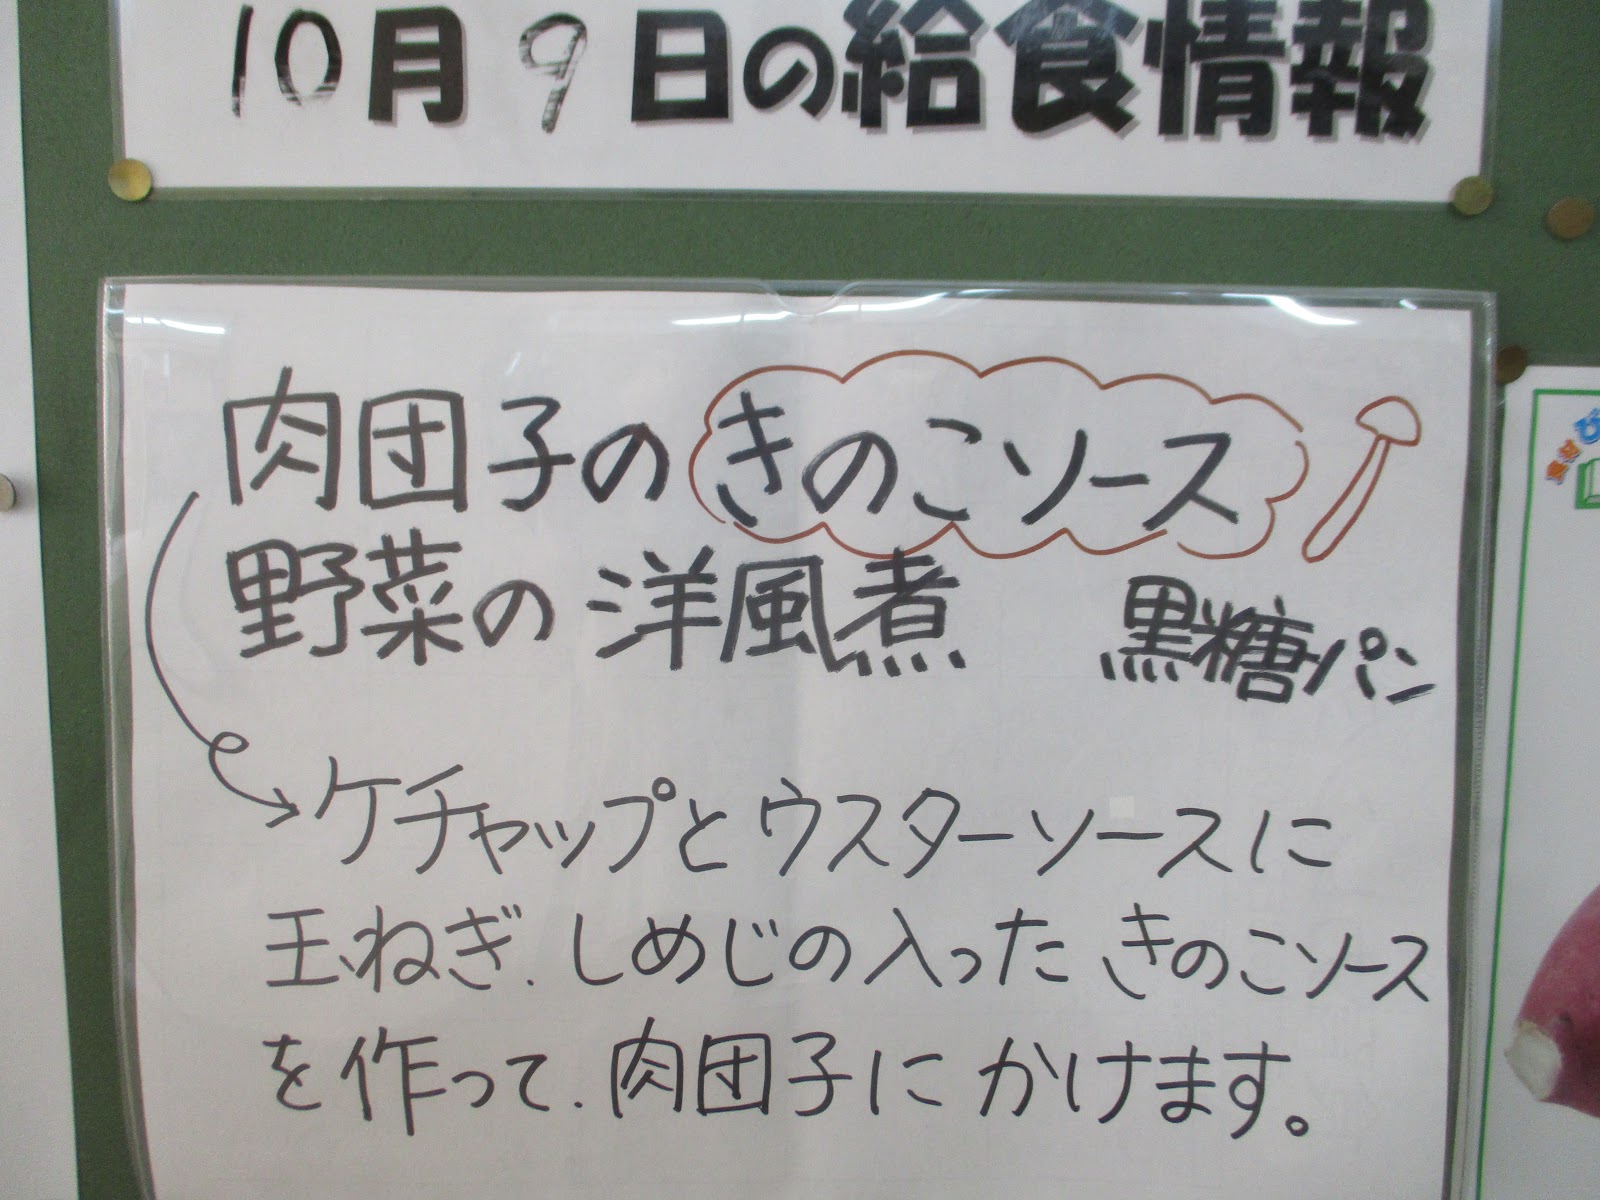 10月9日の給食情報
肉団子のきのこソース
野菜の洋風煮 黒糖パン
ケチャップとウスターソースに
玉ねぎ、しめじの入ったきのこソース
を作って、肉団子にかけます。